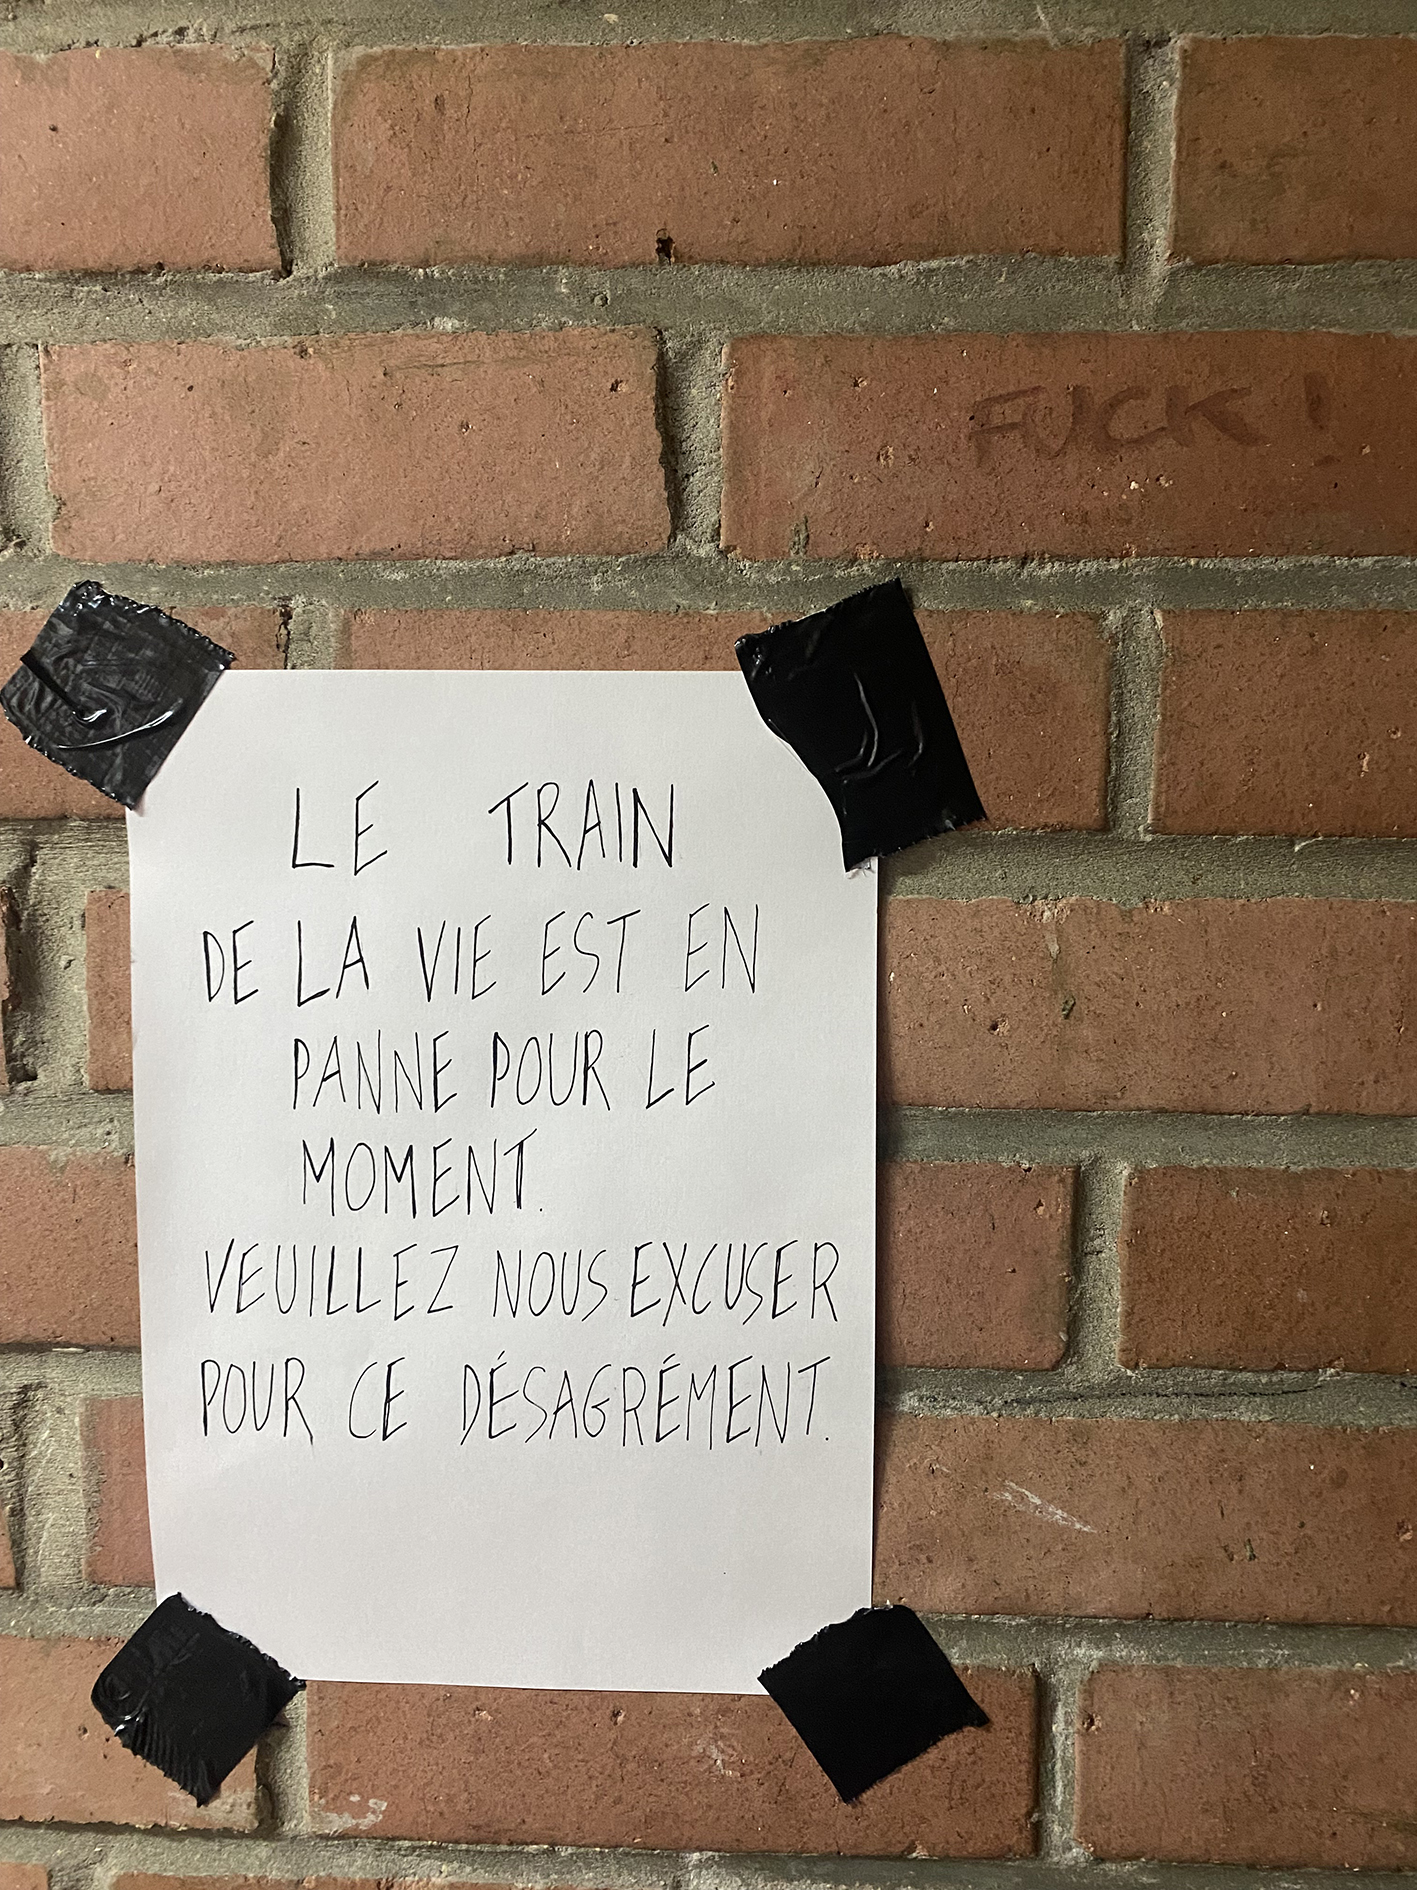 FUCK!
LE TRAIN
DE LA VIE EST EN
PANNE POUR LE
MOMENT.
VEUILLEZ NOUS EXCUSER
POUR CE DÉSAGRÉMENT.